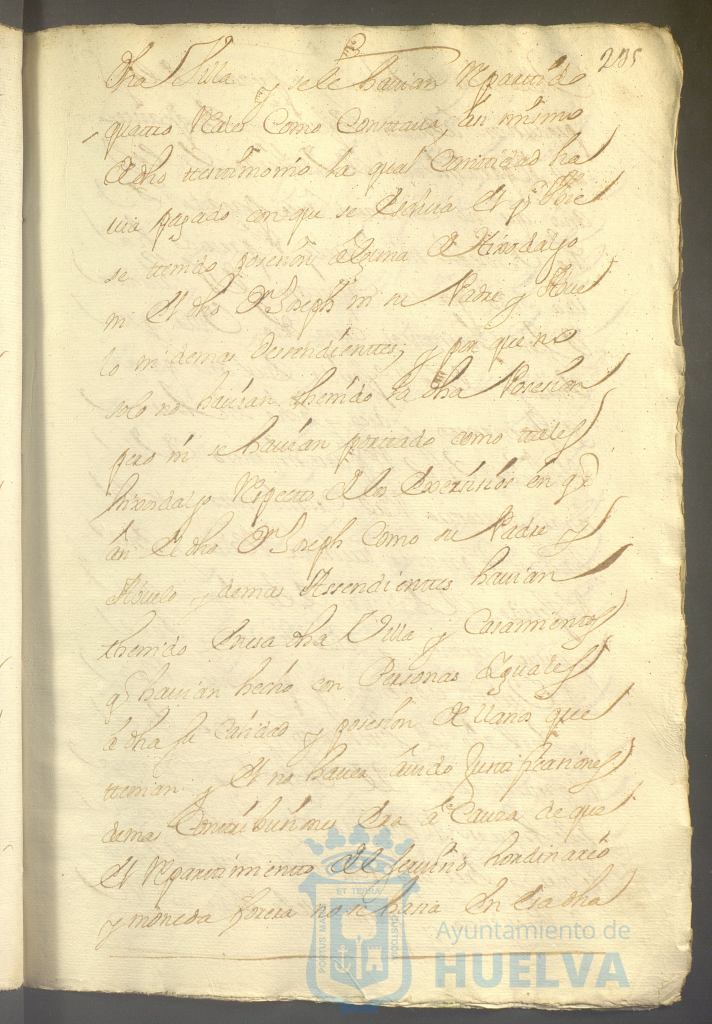 205
dha Villa y se le havian Repartido
quatro Reales como constava, asi mismo
de dho testimonio la qual cantidad ha
via pagado con que se
se tenido posesion alguna de Hixodalgo
ni el dho Dn Joseph ni su Padre y Abue
lo ni demas Desendientes, y por que no
solo no havian thenido la dha Posesion
pero ni se havian portado como tales
hixosdalgo Respecto de los exerssisios en qe
an el dho Dn Joseph como su Padre y
Abuelo y demas Assendientes havian
thenido en esa dha Villa y Casamientos
qe havian hecho con Personas Yguales
a dha su Calidad y posesion de llanos que
tenian y el no haver avido Justificasiones
de mas Contribusiones era a Causa de que
el Repartimiento del servisio hordinario
y moneda forera no se hasia en esa dha
PORTUS MARIS ET TERRAE CUSTODIA
Ayuntamiento de
HUELVA